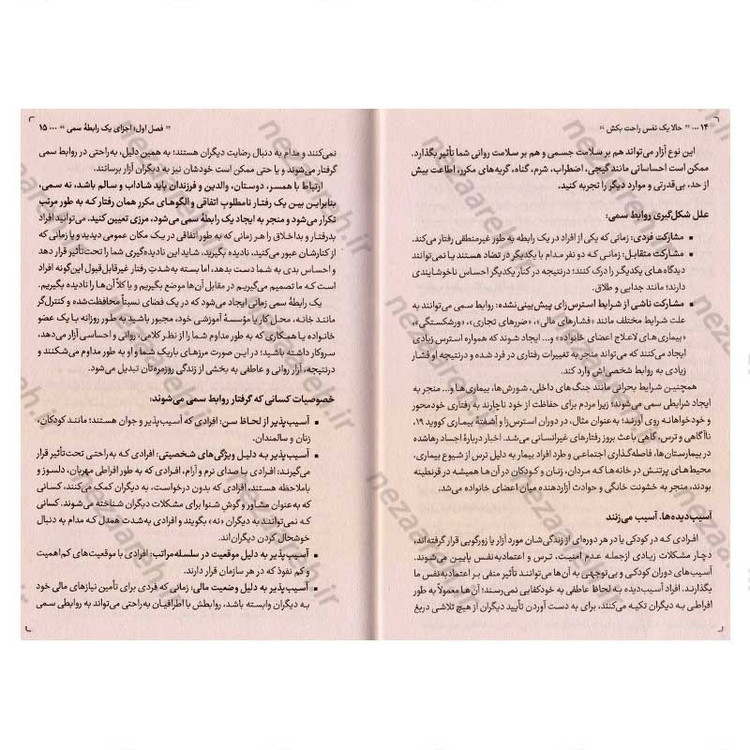 ۱۴ ... " حالا یک نفس راحت بکش "
این نوع آزار می‌تواند هم بر سلامت جسمی و هم بر سلامت روانی شما تأثیر بگذارد.
ممکن است احساساتی مانند گیجی، اضطراب، شرم، گناه، گریه‌های مکرر، اطاعت بیش
از حد، بی‌قدرتی و موارد دیگر را تجربه کنید.
علل شکل‌گیری روابط سمی:
▪ مشارکت فردی: زمانی که یکی از افراد در یک رابطه به طور غیرمنطقی رفتار می‌کند.
▪ مشارکت متقابل: زمانی که دو نفر مدام با یکدیگر در تضاد هستند یا نمی‌توانند
دیدگاه‌های یکدیگر را درک کنند؛ درنتیجه در کنار یکدیگر احساس ناخوشایندی
دارند؛ مانند جدایی و طلاق.
▪ مشارکت ناشی از شرایط استرس‌زای پیش‌بینی‌نشده: روابط سمی می‌توانند به
علت شرایط مختلف مانند «فشارهای مالی»، «ضررهای تجاری»، «ورشکستگی»،
«بیماری‌های لاعلاج اعضای خانواده» و... ایجاد شوند که همواره استرس زیادی
ایجاد می‌کند که می‌تواند منجر به تغییرات رفتاری در فرد شده و درنتیجه او فشار
زیادی به روابط شخصی‌اش وارد کند.
همچنین شرایط بحرانی مانند جنگ‌های داخلی، شورش‌ها، بیماری‌ها و... منجر به
ایجاد شرایطی سمی می‌شوند؛ زیرا مردم برای حفاظت از خود ناچارند به رفتاری خودمحور
و خودخواهانه روی آورند؛ به‌عنوان مثال، در دوران استرس‌زا و آشفتهٔ بیماری کووید ۱۹،
ناآگاهی و ترس، گاهی باعث بروز رفتارهای غیرانسانی می‌شد. اخبار دربارهٔ اجساد رهاشده
در بیمارستان‌ها، فاصله‌گذاری اجتماعی و طرد افراد بیمار به دلیل ترس از شیوع بیماری،
محیط‌های پرتنش در خانه‌ها که مردان، زنان و کودکان در آن‌ها همیشه در قرنطینه
بودند، منجر به خشونت خانگی و حوادث آزاردهنده میان اعضای خانواده می‌شد.
آسیب‌دیده‌ها، آسیب می‌زنند
افرادی که در کودکی یا در هر دوره‌ای از زندگی‌شان مورد آزار یا زورگویی قرار گرفته‌اند،
دچار مشکلات زیادی ازجمله عدم امنیت، ترس و اعتمادبه‌نفس پایین می‌شوند.
آسیب‌های دوران کودکی و بی‌توجهی به آن‌ها می‌توانند تأثیر منفی بر اعتمادبه‌نفس ما
بگذارند. افراد آسیب‌دیده به لحاظ عاطفی به خودکفایی نمی‌رسند؛ آن‌ها معمولاً به طور
افراطی به دیگران تکیه می‌کنند، برای به دست آوردن تأیید دیگران از هیچ تلاشی دریغ
" فصل اول: اجزای یک رابطهٔ سمی " ... ۱۵
نمی‌کنند و مدام به دنبال رضایت دیگران هستند؛ به همین دلیل، به‌راحتی در روابط سمی
گرفتار می‌شوند و یا حتی ممکن است خودشان نیز به دیگران آزار برسانند.
ارتباط با همسر، دوستان، والدین و فرزندان باید شاداب و سالم باشد، نه سمی،
بنابراین بین یک رفتار نامطلوب اتفاقی و الگوهای مکرر همان رفتار که به طور مرتب
تکرار می‌شود و منجر به ایجاد یک رابطهٔ سمی می‌شود، مرزی تعیین کنید. می‌توانید افراد
بدرفتار و بداخلاق را هر زمانی که به طور اتفاقی در یک مکان عمومی دیدید و یا زمانی که
از کنارشان عبور می‌کنید، نادیده بگیرید. شاید این نادیده‌گیری شما را تحت‌تأثیر قرار دهد
و احساس بدی به شما دست بدهد، اما بسته به شدتِ رفتار غیرقابل‌قبول این‌گونه افراد
است که ما تصمیم می‌گیریم در مقابل آن‌ها موضع بگیریم و یا کلاً آن‌ها را نادیده بگیریم.
یک رابطهٔ سمی زمانی ایجاد می‌شود که در یک فضای نسبتاً محافظت‌شده و کنترل‌گر
مانند خانه، محل کار یا مؤسسهٔ آموزشی خود، مجبور باشید به طور روزانه با یک عضو
خانواده یا همکاری که به طور مداوم شما را از نظر کلامی، روانی و احساسی آزار می‌دهد،
سروکار داشته باشید؛ در این صورت مرزهای باریک شما و او به طور مداوم می‌شکنند و
درنتیجه، آزار روانی و عاطفی به بخشی از زندگی روزمره‌تان تبدیل می‌شود.
خصوصیات کسانی که گرفتار روابط سمی می‌شوند:
▪ آسیب‌پذیر از لحاظ سن: افرادی که آسیب‌پذیر و جوان هستند؛ مانند کودکان،
زنان و سالمندان.
▪ آسیب‌پذیر به دلیل ویژگی‌های شخصیتی: افرادی که به‌راحتی تحت‌تأثیر قرار
می‌گیرند؛ افرادی با صدای نرم و آرام، افرادی که به طور افراطی مهربان، دلسوز و
باملاحظه هستند، افرادی که بدون درخواست، به دیگران کمک می‌کنند، کسانی
که به‌عنوان مشاور و گوش شنوا برای مشکلات دیگران شناخته می‌شوند، کسانی
که نمی‌توانند به دیگران «نه» بگویند و افرادی به‌شدت همدل که مدام به دنبال
خوشحال کردن دیگران‌اند.
▪ آسیب‌پذیر به دلیل موقعیت در سلسله‌مراتب: افرادی با موقعیت‌های کم‌اهمیت
و کم نفوذ که در هر سازمان قرار دارند.
▪ آسیب‌پذیر به دلیل وضعیت مالی: زمانی که فردی برای تأمین نیازهای مالی خود
به دیگران وابسته باشد، روابطش با اطرافیان به‌راحتی می‌تواند به روابطی سمی
nezaareh.ir